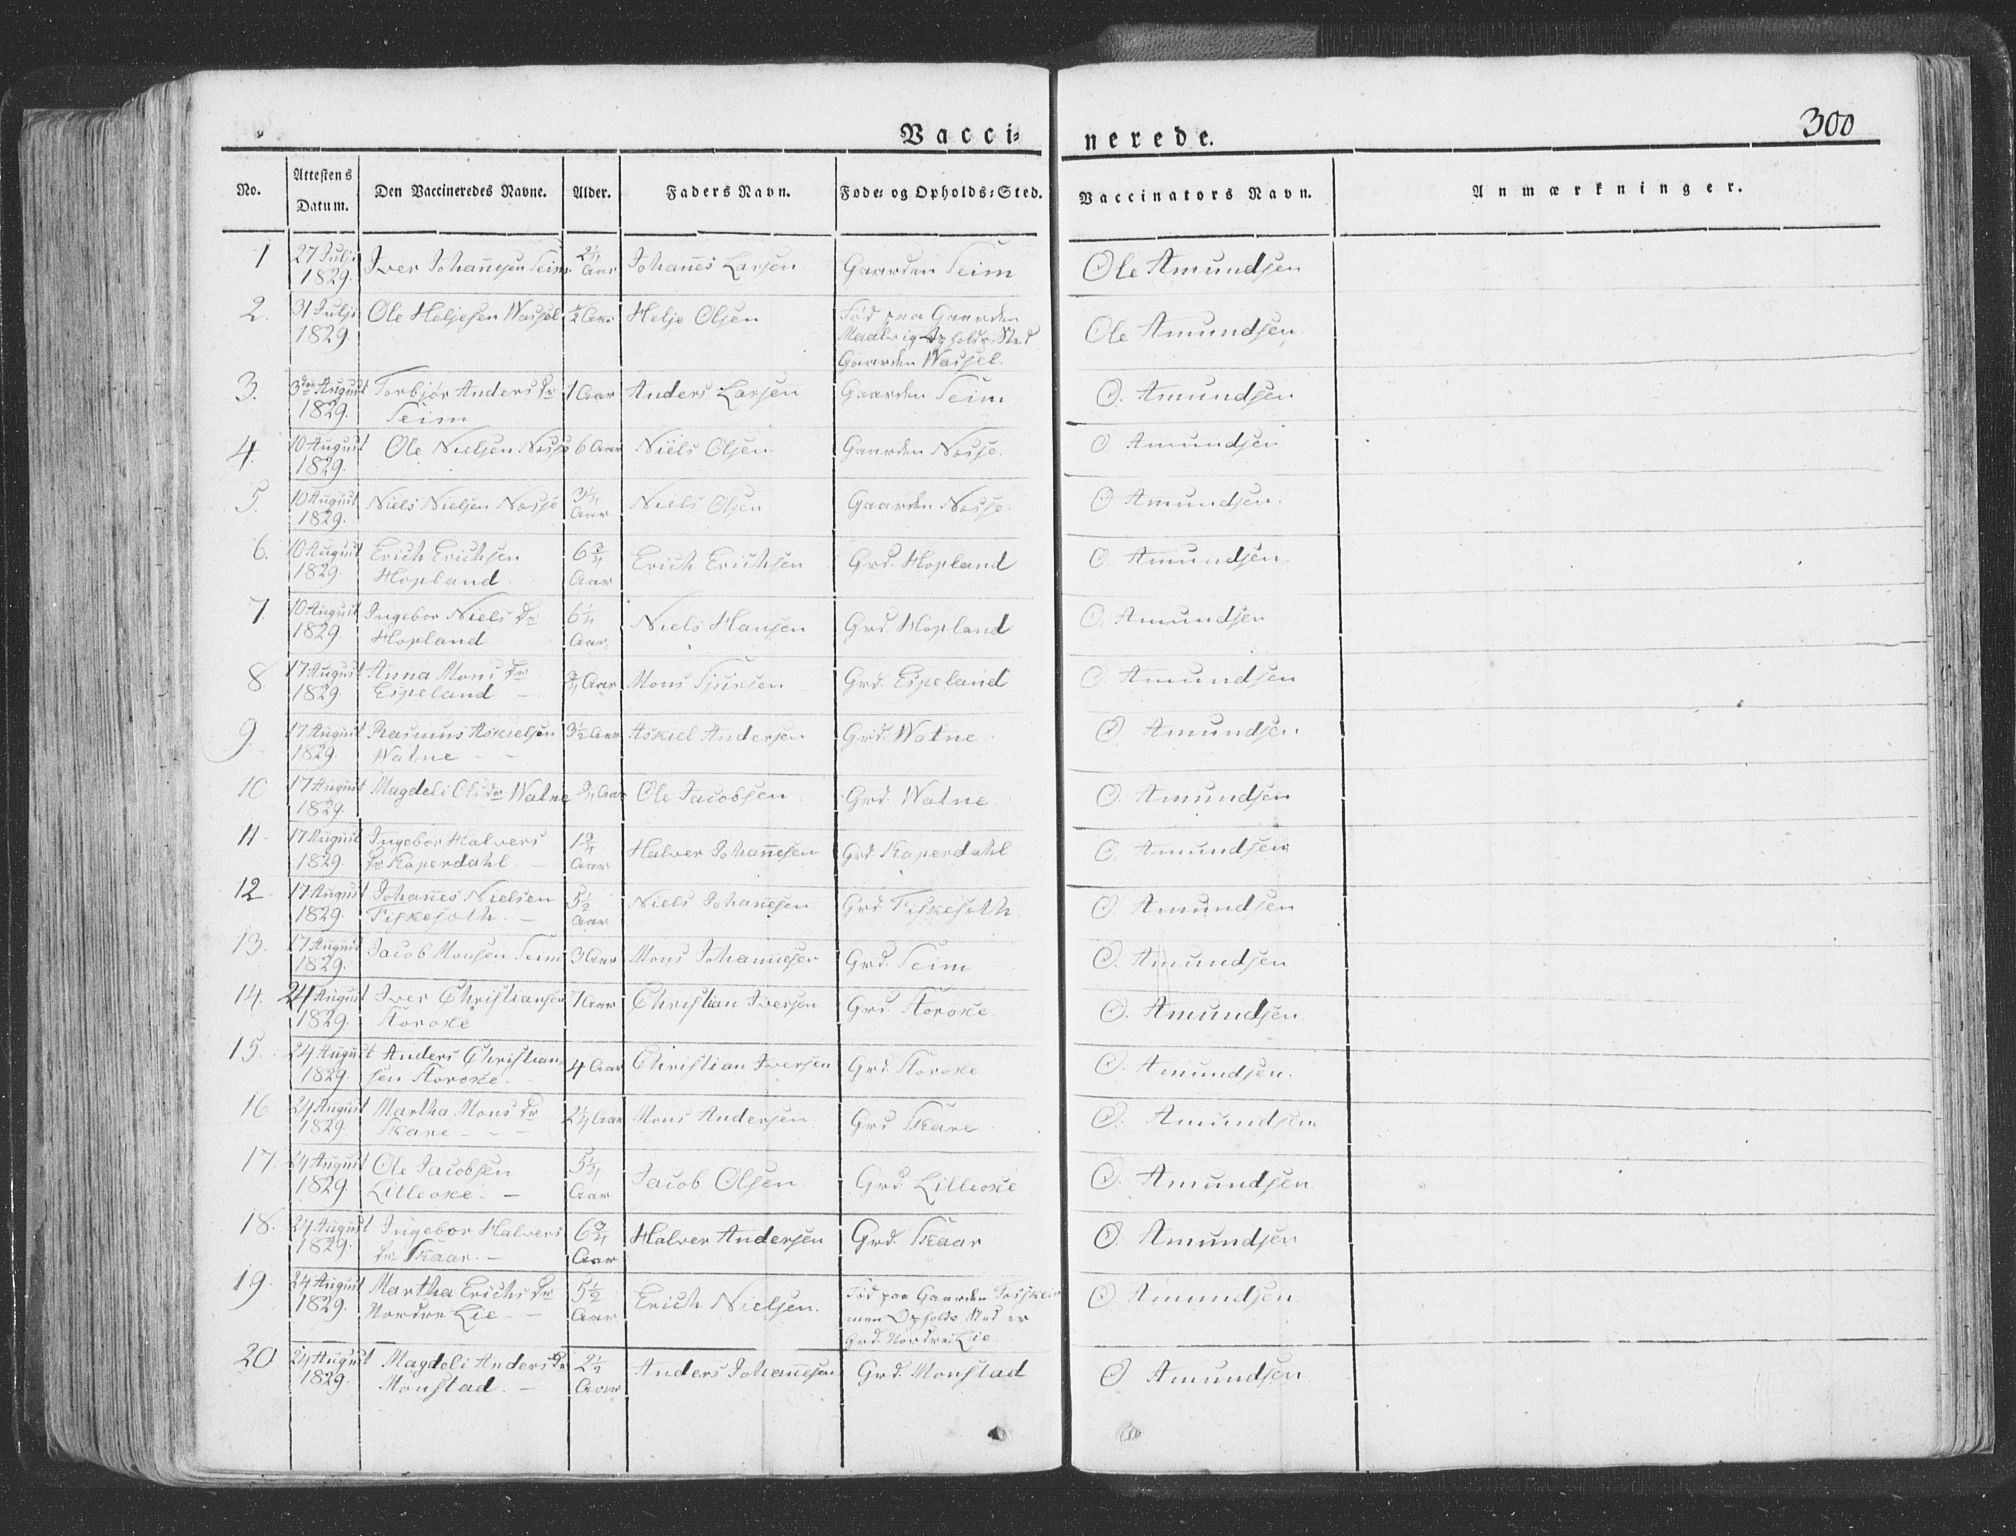 300
Vacci= nerede.
No. Attestens Datum. Den Vaccineredes Navne. Alder. Faders Navn. Føde= og Opholds=Sted. Vaccinators Navn. Anmærkninger.
1 27 Julji 1829. Iver Johannesen Seim 2¼ Aar Johannes Larsen Gaarden Seim Ole Amundsen
2. 31 Julji 1829. Ole Heljesen Wassel ½ Aar Helje Olsen Fød paa Gaarden Maalvig Opholds Sted Gaarden Wassel. Ole Amundsen.
3. 3die August 1829. Torbjør Anders Dr Seim 1 Aar Anders Larsen Gaarden Seim O. Amundsen
4. 10 August 1829. Ole Nielsen Nosse 6 Aar Niels Olsen Gaarden Nosse. O Amundsen
5. 10 August 1829. Niels Nielsen Nosse 3¼ Aar Niels Olsen Gaarden Nosse. O Amundsen.
6. 10 August 1829. Erich Erichsen Hopland 6¾ Aar Erich Erichsen Grd. Hopland O. Amundsen.
7. 10 August 1829. Ingebor Niels Dr Hopland 6¼ Aar Niels Hansen Grd Hopland O. Amundsen
8 17 August 1829. Anna Mons Dr Espeland ¾ Aar Mons Sjursen Grd. Espeland O Amundsen
9. 17 August 1829. Rasmus Askielsen Watne 3½ Aar Askiel Andersen Grd. Watne O. Amundsen
10 17 August 1829. Magdeli Ols Dr Watne ¾ Aar Ole Jacobsen Grd. Watne. O. Amundsen
11 17 August 1829. Ingebor Halvers Dr Koperdahl 1¾ Aar Halver Johannesen Grd. Koperdahl O. Amundsen
12 17 August 1829. Johannes Nielsen Fiskesoth 5½ Aar Niels Johannesen Grd. Fiskesoth. O Amundsen
13. 17 August 1829. Jacob Monsen Seim 3 Aar Mons Johannesen Grd. Seim O. Amundsen
14. 24 August 1829. Iver Christiansen 1 Aar Christian Iversen Grd. O. Amundsen.
15. 24 August 1829. Anders Christiansen 4 Aar Christian Iversen Grd. O. Amundsen.
16 24 August 1829 Martha Mons Dr Skare 2¼ Aar Mons Andersen. Grd Skare O Amundsen
17. 24 August 1829. Ole Jacobsen Lilleoxe. 5¼ Aar Jacob Olsen Grd. Lilleoxe O. Amundsen
18. 24 August 1829. Ingebor Halvers Dr Skaar. 6¾ Aar Halver Andersen Grd. Skaar O. Amundsen
19. 24 August 1829. Martha Erichs Dr Nordre Lie 5½ Aar Erich Nielsen. Fød paa Gaarden men Opholds Sted er Grd. Nordre Lie O Amundsen
20 24 August 1829. Magdeli Anders Dr Monstad. 2½ Aar Anders Johannesen Grd. Monstad O Amundsen.